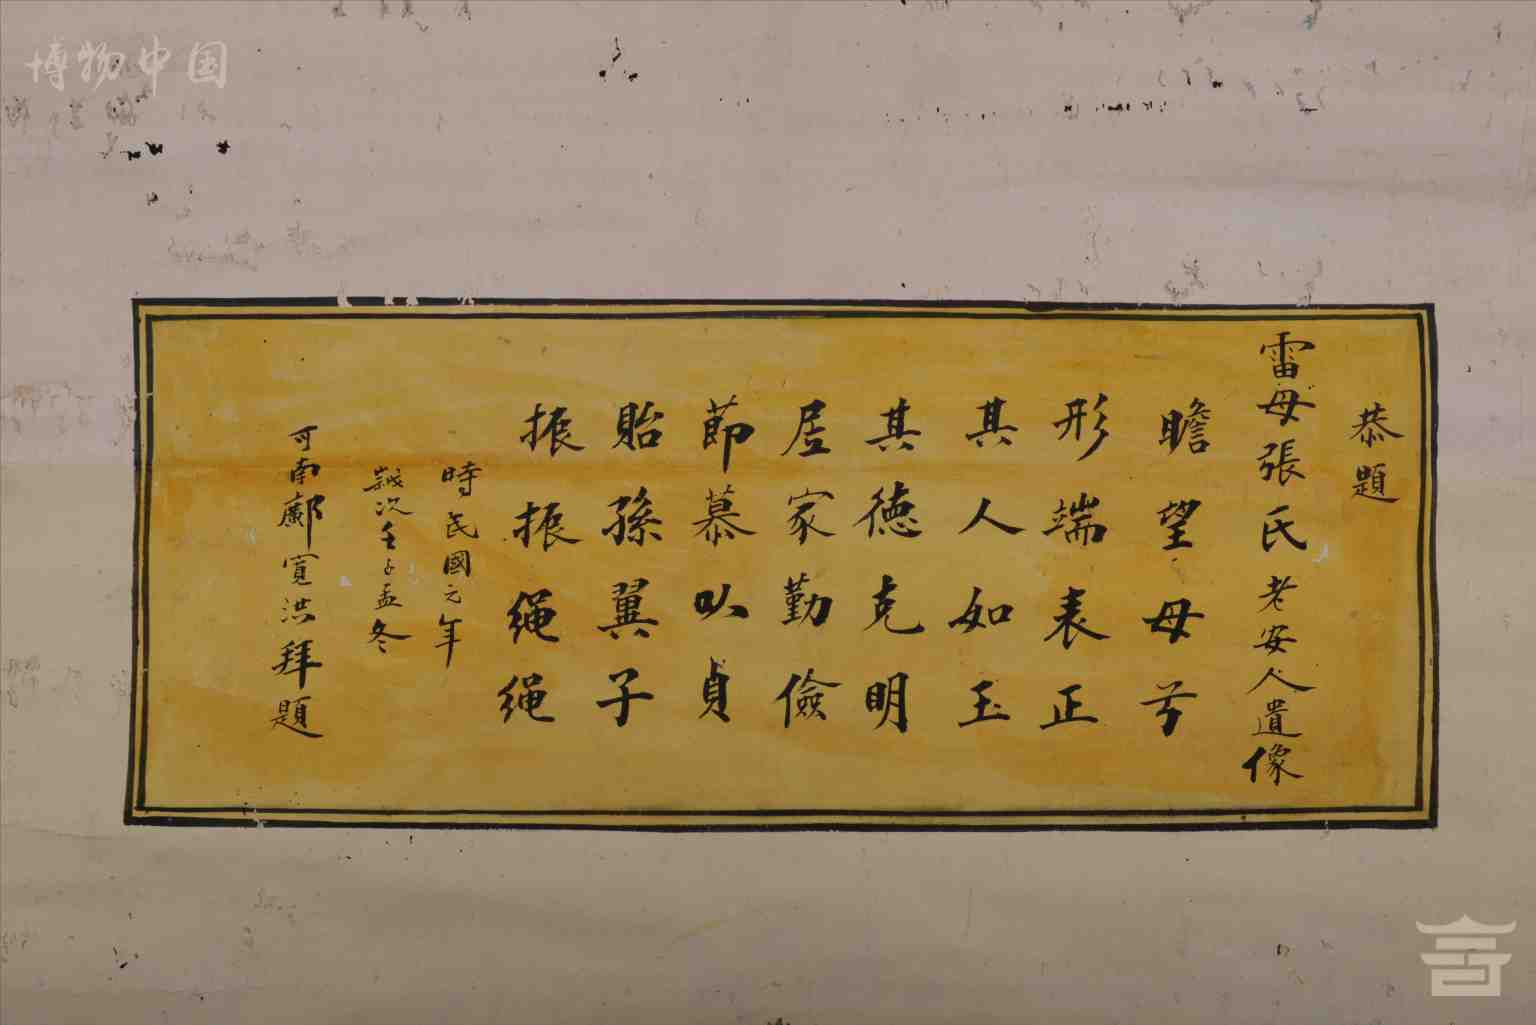 博物中国
恭題
雷母張氏老安人遺像
瞻望母兮
形端表正
其人如玉
其德克明
居家勤儉
莭慕以貞
貽孫翼子
振振繩繩
時民國元年
歲次壬子孟冬
可南鄺寬洪拜題